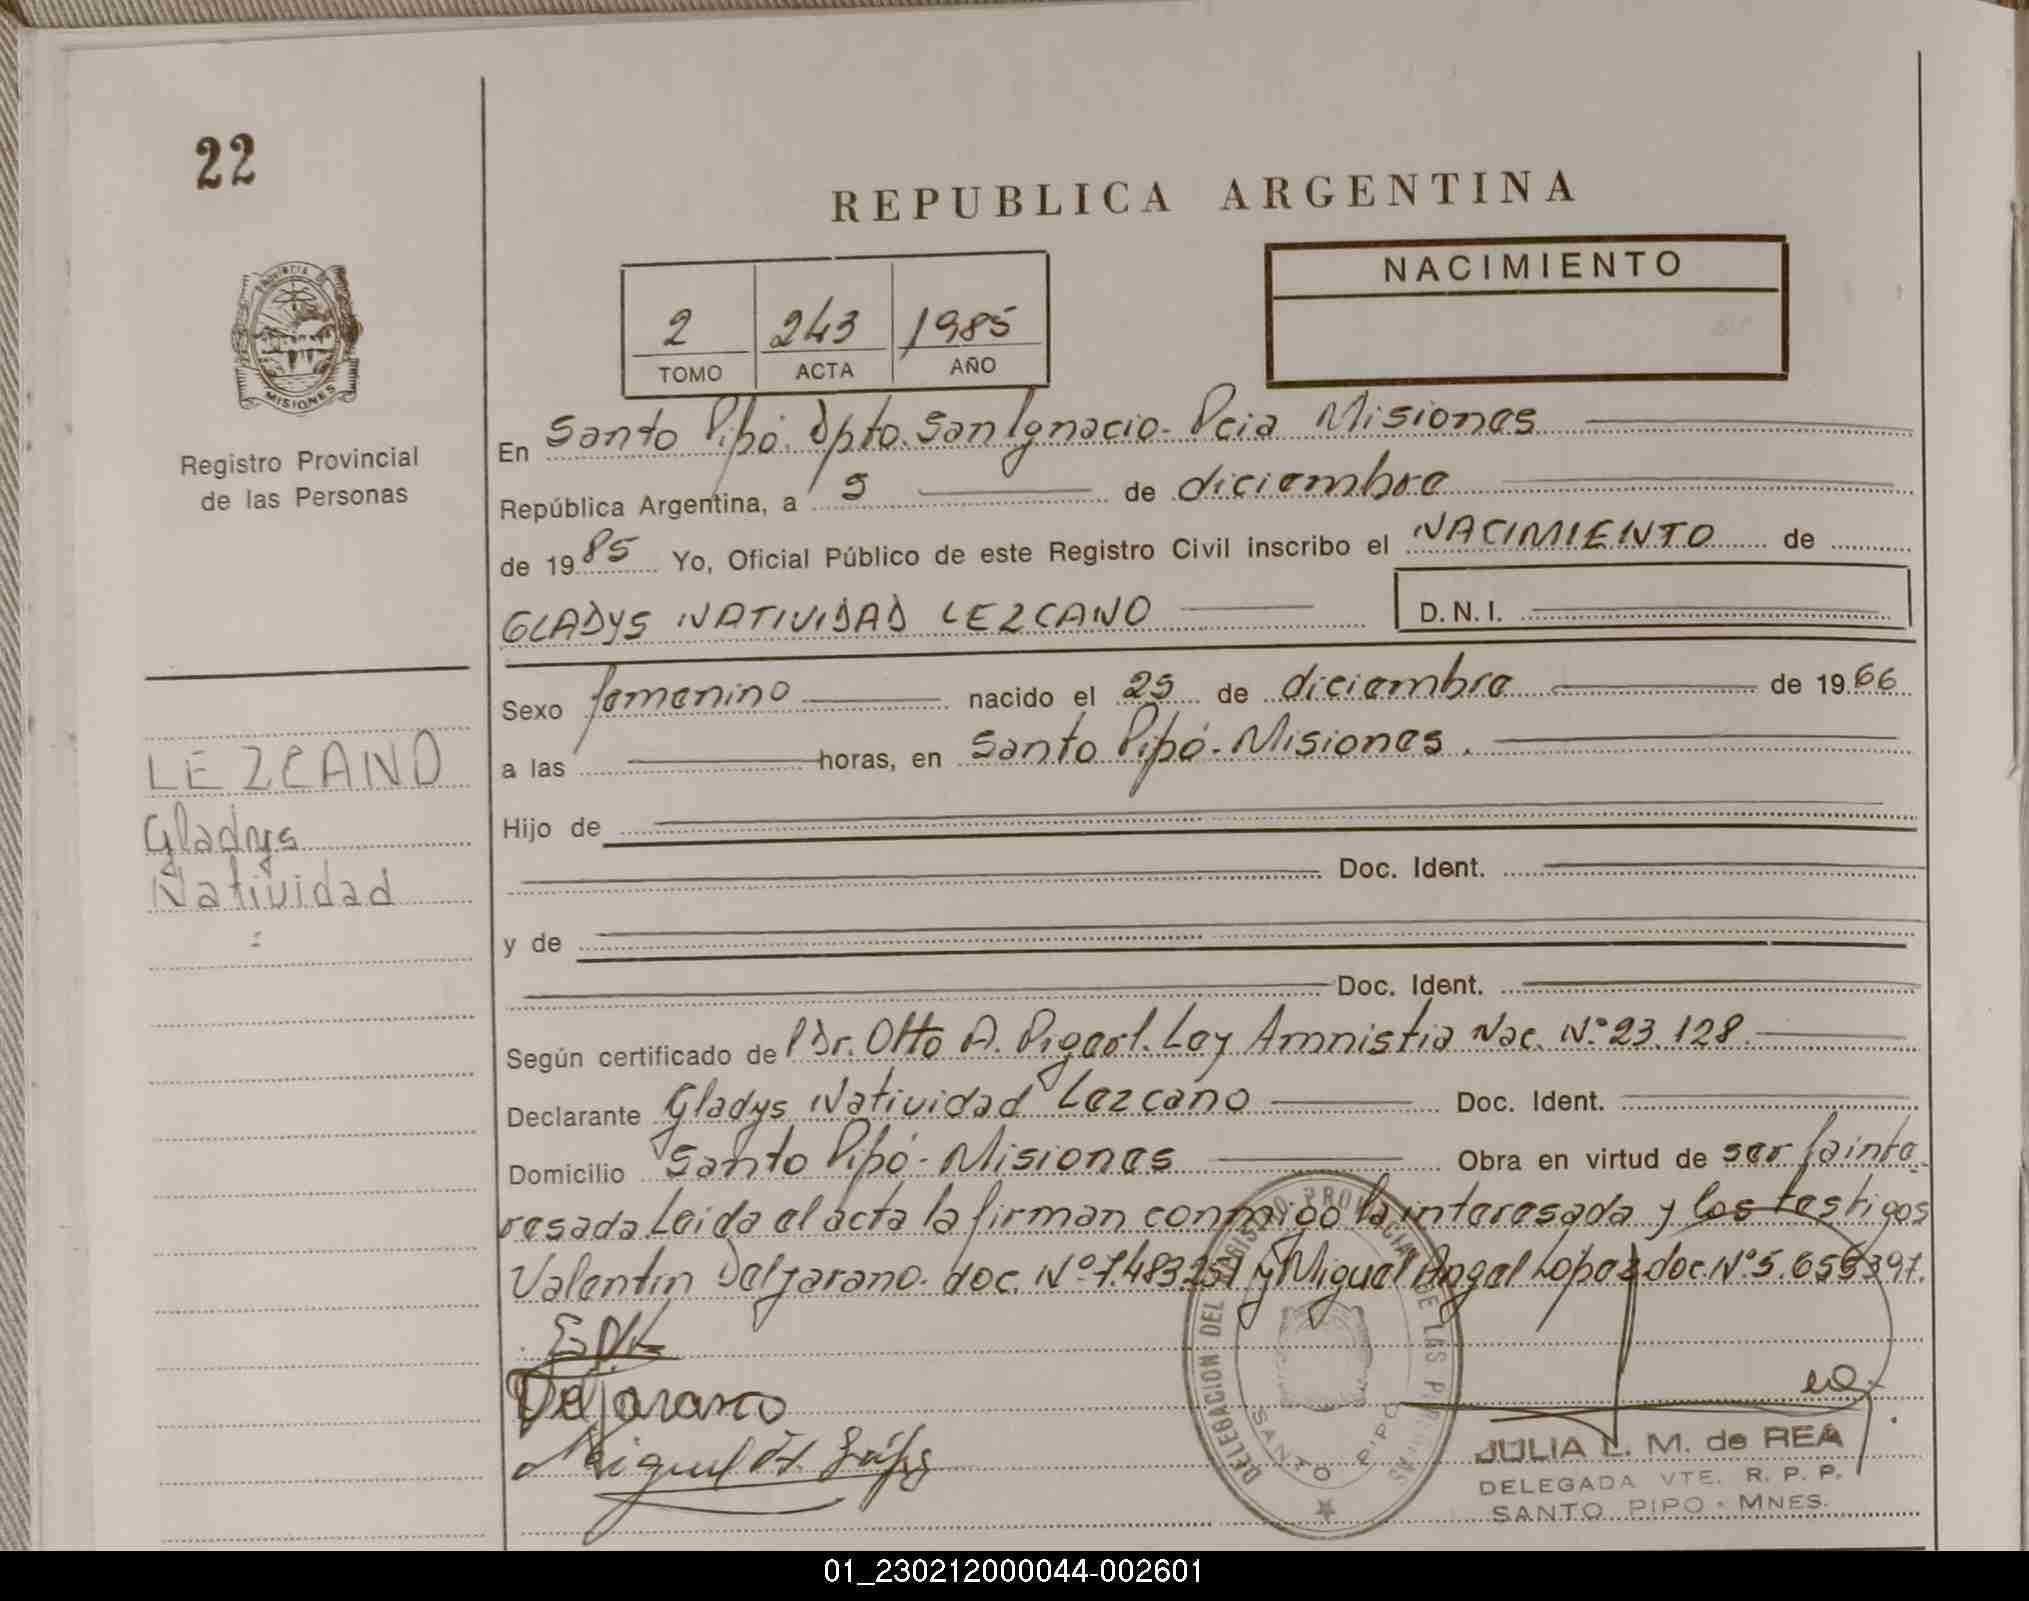 22
REPUBLICA ARGENTINA
NACIMIENTO
2 243 1985
TOMO ACTA AÑO
PROVINCIA DE
MISIONES
Registro Provincial
de las Personas
En Santo Pipó. Dpto. San Ignacio - Pcia Misiones
República Argentina, a 9 de diciembre
de 1985 Yo, Oficial Público de este Registro Civil inscribo el NACIMIENTO de
GLADYS NATIVIDAD LEZCANO D.N.I.
Sexo femenino nacido el 25 de diciembre de 1966
a las horas, en Santo Pipó - Misiones.
LEZCANO
Gladys
Natividad
Hijo de
Doc. Ident.
y de
Doc. Ident.
Según certificado de Dr. Otto A. Ley Amnistia Nac. Nº 23.128.
Declarante Gladys Natividad Lezcano Doc. Ident.
Domicilio Santo Pipó - Misiones Obra en virtud de ser la inte-
resada Leida el acta la firman conmigo la interesada y los testigos
Valentin Dejarano. doc. Nº 7.483.257 y Miguel Angel Lopez doc. Nº 5.656397.
Dejarano
Miguel A.
DELEGACION DEL REGISTRO PROVINCIAL DE LAS PERSONAS
SANTO PIPO
JULIA L. M. de REA
DELEGADA VTE. R. P. P.
SANTO PIPO - MNES.
01_230212000044-002601